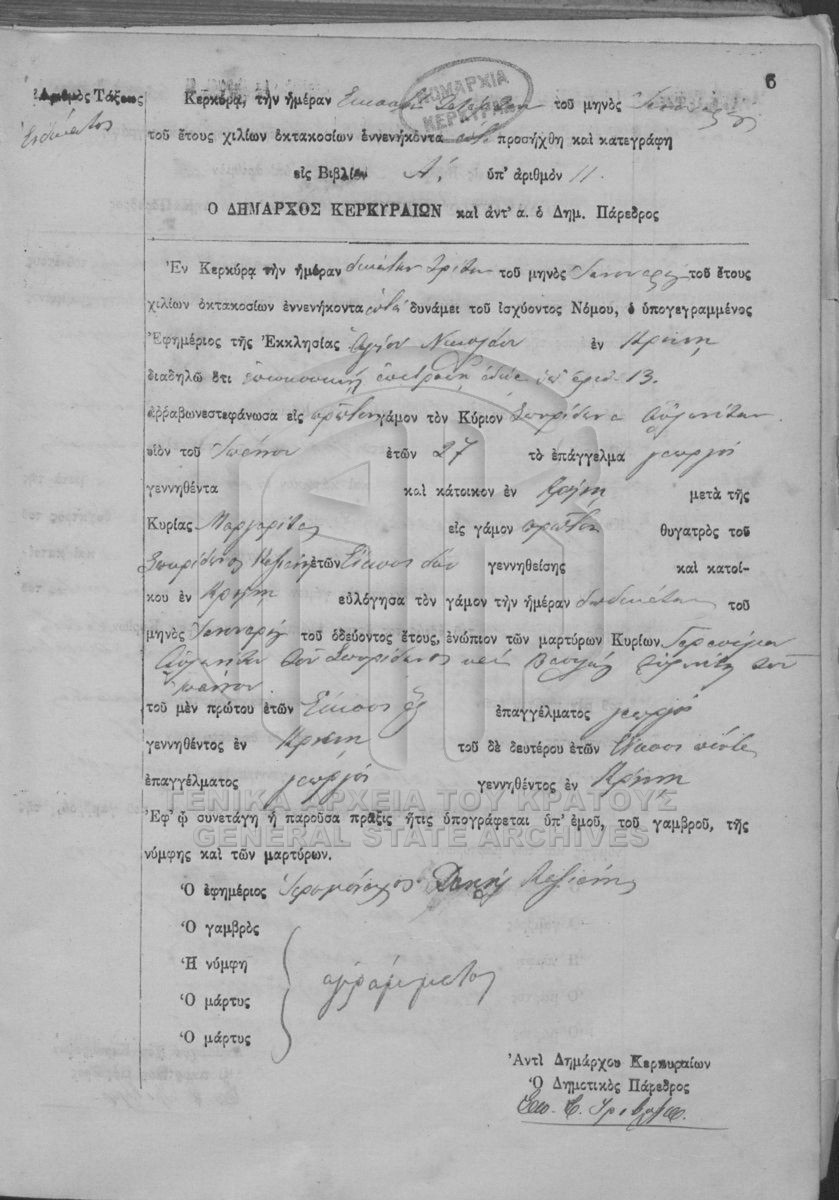 6
ΔΗΜΑΡΧΙΑ
ΚΕΡΚΥΡΑΣ
Ἀριθμὸς Τάξεως
Ἑνδέκατος
Κερκύρᾳ, τὴν ἡμέραν Εἰκοστὴν τοῦ μηνὸς
τοῦ ἔτους χιλίων ὀκτακοσίων ἐννενήκοντα προσήχθη καὶ κατεγράφη
εἰς Βιβλίον Α΄, ὑπ' ἀριθμὸν 11.
Ο ΔΗΜΑΡΧΟΣ ΚΕΡΚΥΡΑΙΩΝ καὶ ἀντ' α. ὁ Δημ. Πάρεδρος
Ἐν Κερκύρᾳ τὴν ἡμέραν δεκάτην τρίτην τοῦ μηνὸς Ἰανουαρίου τοῦ ἔτους
χιλίων ὀκτακοσίων ἐννενήκοντα ἑπτὰ δυνάμει τοῦ ἰσχύοντος Νόμου, ὁ ὑπογεγραμμένος
Ἐφημέριος τῆς Ἐκκλησίας Ἁγίου Νικολάου ἐν Κρήνῃ
διαδηλῶ ὅτι ὑπ' ἀριθ. 13.
ἀρραβωνεστεφάνωσα εἰς πρῶτον γάμον τὸν Κύριον Σπυρίδωνα
υἱὸν τοῦ ἐτῶν 27 τὸ ἐπάγγελμα γεωργὸς
γεννηθέντα καὶ κάτοικον ἐν Κρήνῃ μετὰ τῆς
Κυρίας Μαργαρίτας εἰς γάμον πρῶτον θυγατρὸς τοῦ
Σπυρίδωνος ἐτῶν Εἴκοσι δύο γεννηθείσης καὶ κατοί-
κου ἐν Κρήνῃ εὐλόγησα τὸν γάμον τὴν ἡμέραν δωδεκάτην τοῦ
μηνὸς Ἰανουαρίου τοῦ ὁδεύοντος ἔτους, ἐνώπιον τῶν μαρτύρων Κυρίων.
τοῦ Σπυρίδωνος καὶ τοῦ
τοῦ μὲν πρώτου ἐτῶν Εἴκοσι ἓξ ἐπαγγέλματος γεωργὸς
γεννηθέντος ἐν Κρήνῃ τοῦ δὲ δευτέρου ἐτῶν εἴκοσι πέντε
ἐπαγγέλματος γεωργὸς γεννηθέντος ἐν Κρήνῃ
ΓΕΝΙΚΑ ΑΡΧΕΙΑ ΤΟΥ ΚΡΑΤΟΥΣ
GENERAL STATE ARCHIVES
Ἐφ' ᾧ συνετάγη ἡ παροῦσα πρᾶξις ἥτις ὑπογράφεται ὑπ' ἐμοῦ, τοῦ γαμβροῦ, τῆς
νύμφης καὶ τῶν μαρτύρων.
Ὁ ἐφημέριος Ἱερομόναχος
Ὁ γαμβρὸς
Ἡ νύμφη
ἀγράμματοι
Ὁ μάρτυς
Ὁ μάρτυς
Ἀντὶ Δημάρχου Κερκυραίων
Ὁ Δημοτικὸς Πάρεδρος